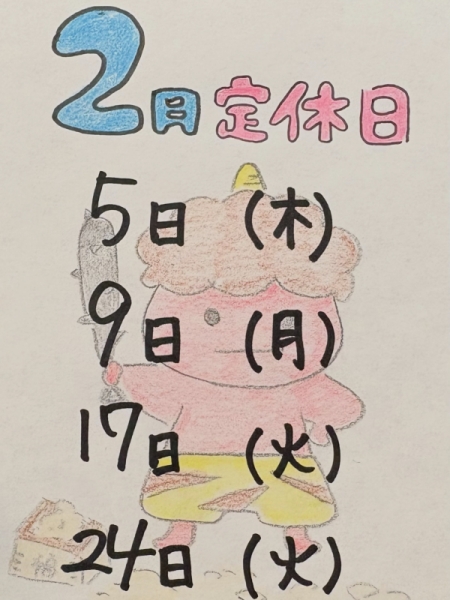 2月定休日
5日（木）
9日（月）
17日（火）
24日（火）